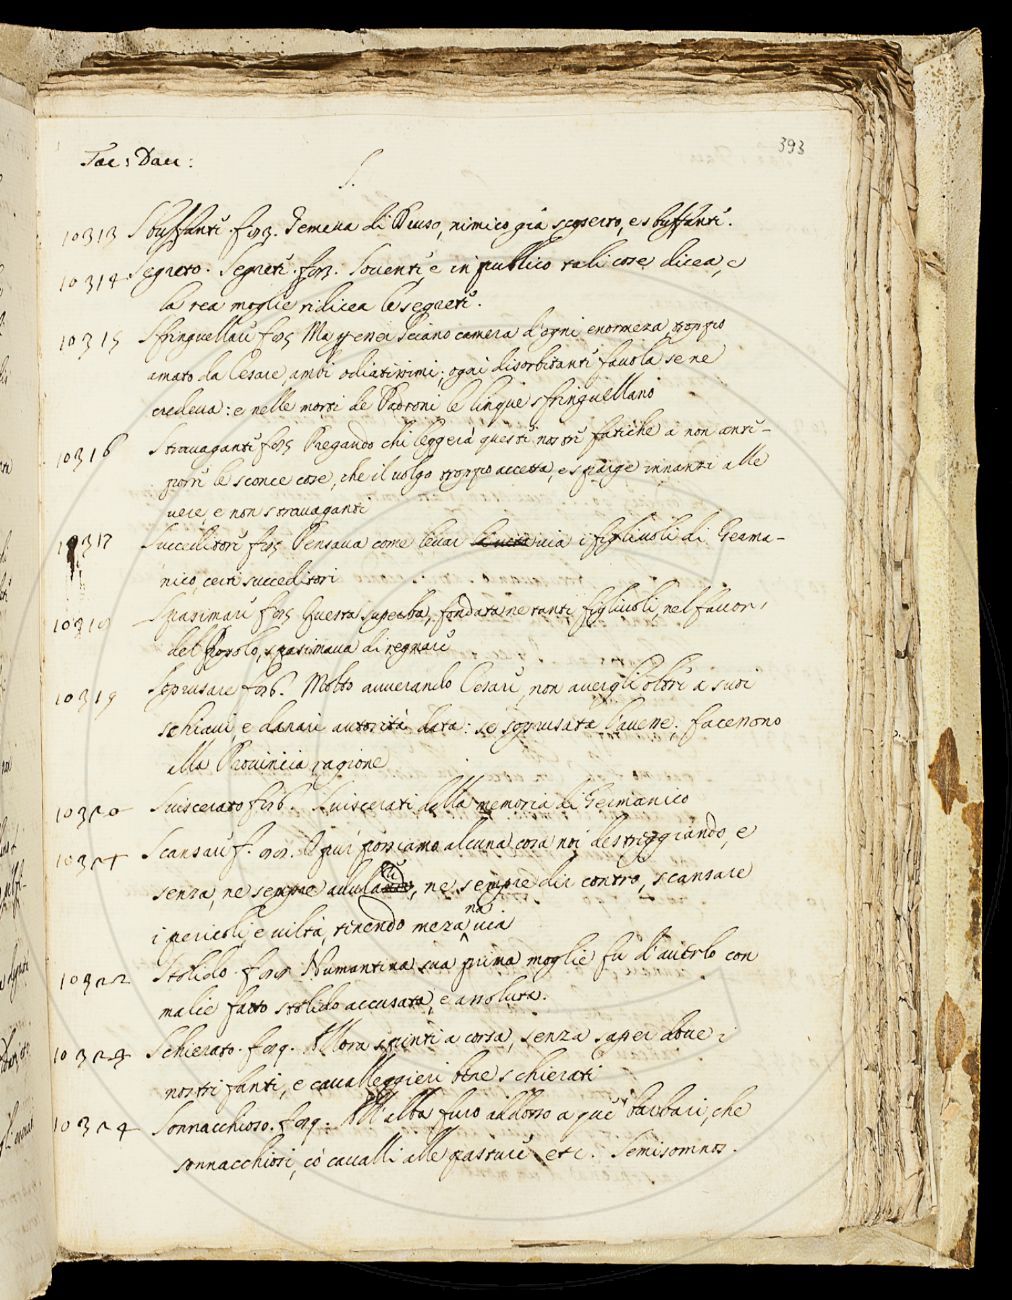 393
Tac: Dau:
S.
10313 Sbuffanti. Temeva di Druso, nimico già scoperto, e sbuffanti.
10314 Segreto. Segreti. Soventi, e in publico tali cose dicea, e
la rea moglie ridicea le segreti.
10315 Sfringuellari Ma Seiano camera d'ogni enormeza, troppo
amato da Cesare ambi odiatissimi; ogni disorbitanti favola se ne
credeva: e nelle morti de Padroni le lingue sfringuellano
10316 Stravaganti Pregando chi leggerà questi nostri fatiche a non anti-
porri le sconce cose, che il volgo troppo accetta, e spaige innanti alle
vere, e non stravaganti
10317 Succeditori Pensava come levar via i figliuoli di Germa-
nico, certi succeditori
Spasimari superba, fondata ne tanti figliuoli, nel favor,
del Popolo, spasimava di regnari
10319 Soprusare Molto avverando Cesari, non avergli oltri a suoi
schiavi e danari autorità data: se soprusata l'avette; facessono
alla Provincia ragione
10320 Sviscerato Sviscerati della memoria di Germanico
Scansari possiamo alcuna cosa noi destreggiando, e
senza, ne sempre adulari, ne sempre dir contro, scansare
i pericoli, e viltà, tenendo mezana via
10322 Stolido. Numantina sua prima moglie fu d'averlo con
malie fatto stolido accusata, e assoluta.
10323 Schierato. Allora spinti a corsa, senza saper dove i
nostri fanti, e cavalleggieri bene schierati
10324 Sonnacchioso. All'alba furo addosso a que' barbari, che
sonnacchiosi, co' cavalli alle pasturi etc. Semisomnos.